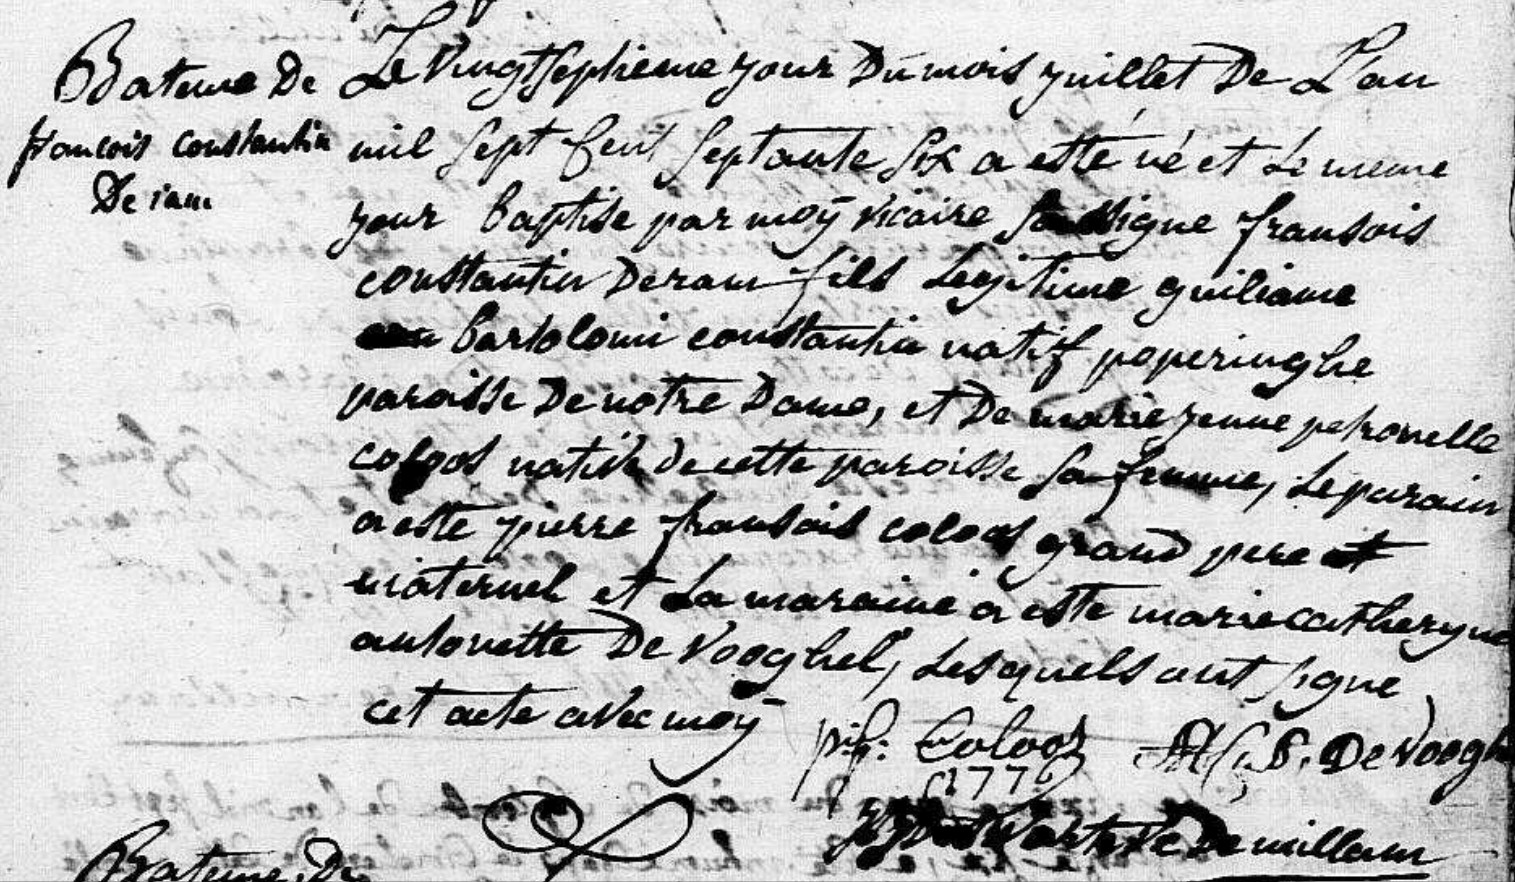 Bateme De
francois constantin
De ram
Le vingtseptieme jour Du mois juillet De L'an
mil sept Cent septante six a esté né et Le meme
jour baptise par moÿ vicaire soussigne fransois
constantin Deram fils Legitime guiliame
bartolomi constantin natif poperinghe
paroisse De notre Dame, et De marie jenne petronelle
coloos native de cette paroisse sa femme, Le parain
a este pierre fransois coloos grand pere
maternel et La maraine a este marie catheryne
antonette De Vooghel, Lesquels ont signe
cet acte avec moÿ
p: f: Coloos De Voogh
1776
De millam
Bateme De